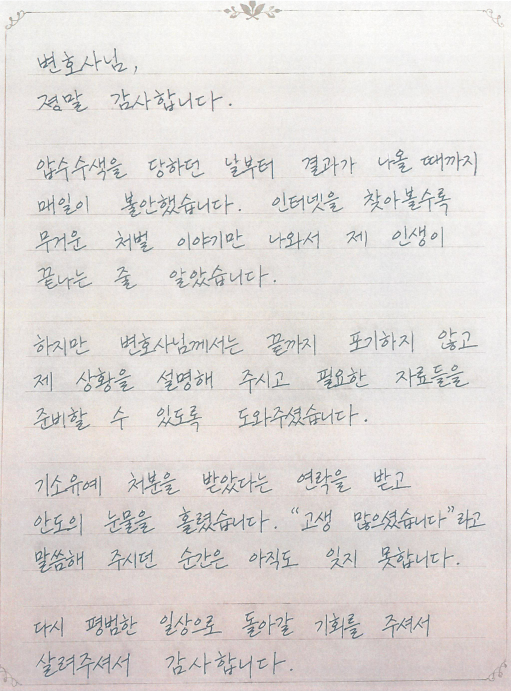 변호사님,
정말 감사합니다.
압수수색을 당하던 날부터 결과가 나올 때까지
매일이 불안했습니다. 인터넷을 찾아볼수록
무거운 처벌 이야기만 나와서 제 인생이
끝나는 줄 알았습니다.
하지만 변호사님께서는 끝까지 포기하지 않고
제 상황을 설명해 주시고 필요한 자료들을
준비할 수 있도록 도와주셨습니다.
기소유예 처분을 받았다는 연락을 받고
안도의 눈물을 흘렸습니다. "고생 많으셨습니다"라고
말씀해 주시던 순간은 아직도 잊지 못합니다.
다시 평범한 일상으로 돌아갈 기회를 주셔서
살려주셔서 감사합니다.